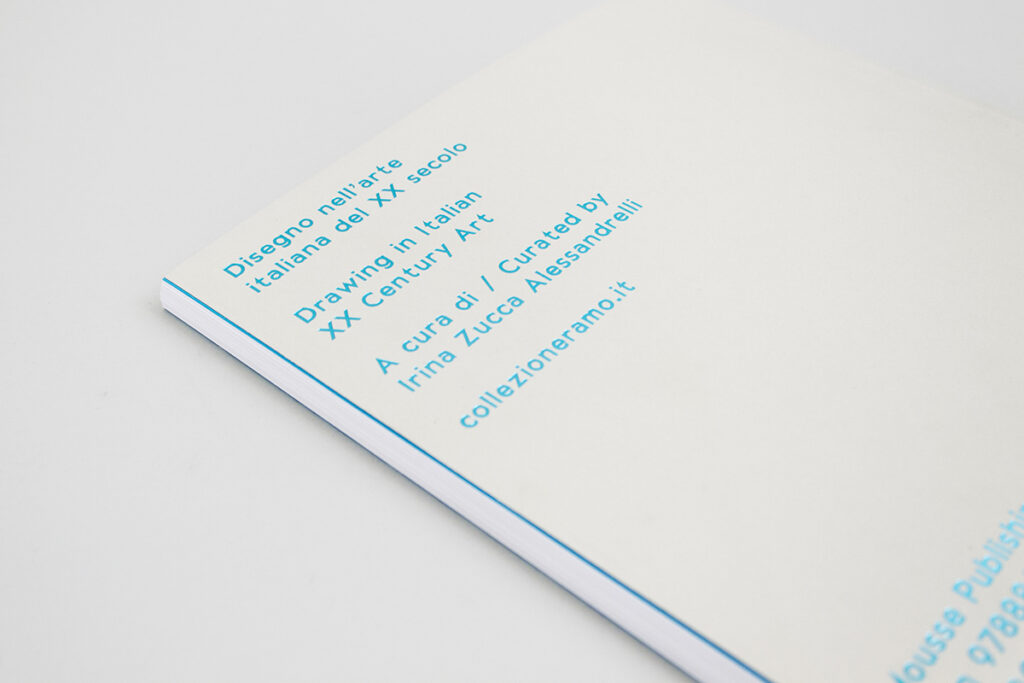 Disegno nell'arte
italiana del XX secolo
Drawing in Italian
XX Century Art
A cura di / Curated by
Irina Zucca Alessandrelli
collezioneramo.it